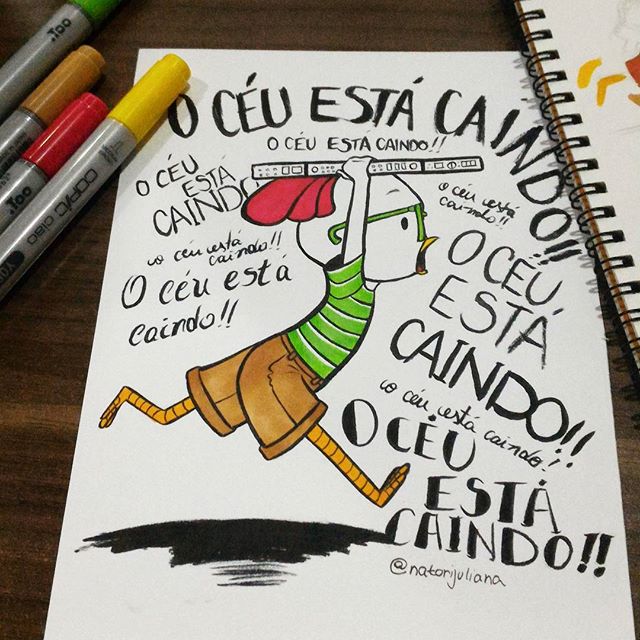 O CÉU ESTÁ CAINDO!!
O CÉU ESTÁ CAINDO!!
O CÉU
ESTÁ
CAINDO
o céu está
caindo!!
O céu está
caindo!!
o céu está
caindo!!
O CÉU
ESTÁ
CAINDO!!
o céu está caindo!!
O CÉU
ESTÁ
CAINDO!!
@natorijuliana
.Too
.Too
COPIC ciao